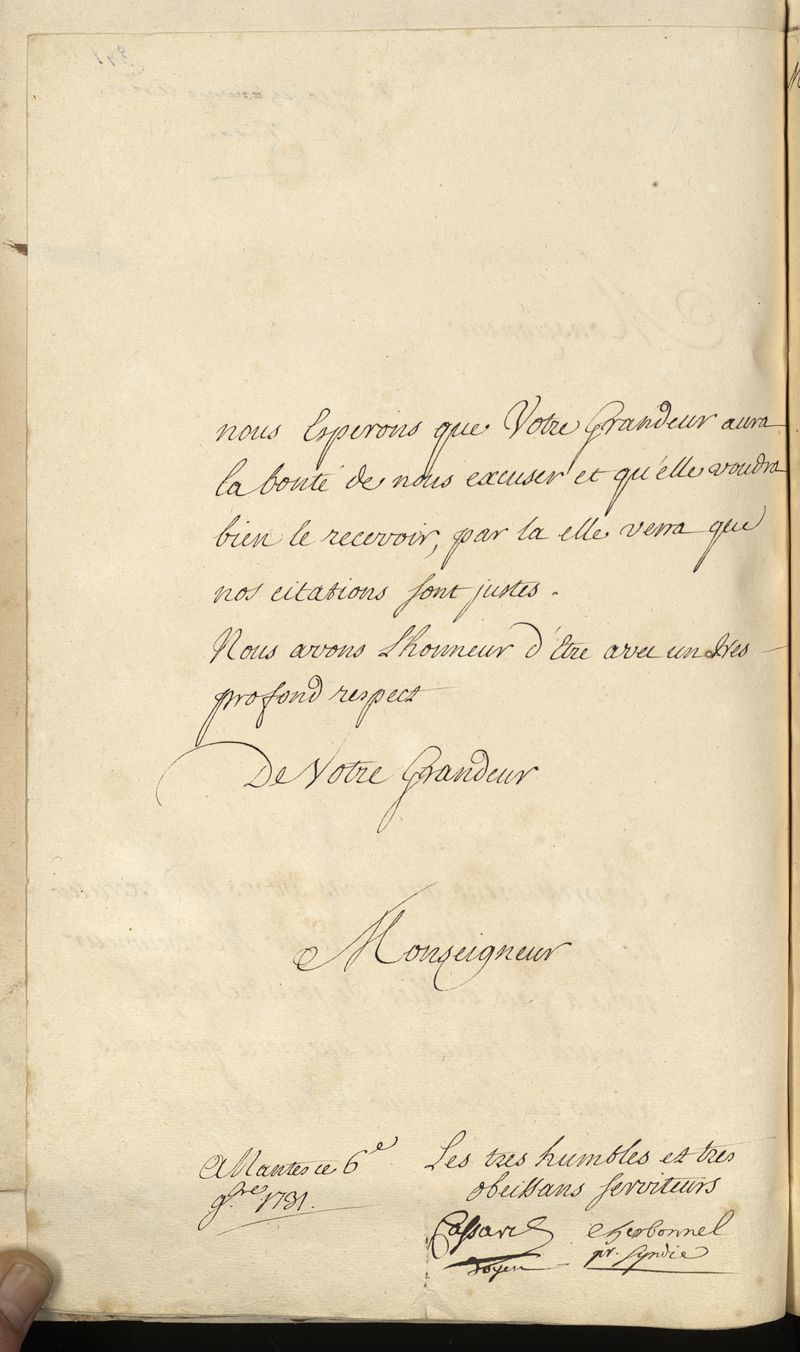 nous Esperons que Votre Grandeur aura
la bonté de nous excuser et qu'elle voudra
bien le recevoir, par la elle verra que
nos citations sont justes.
Nous avons L'honneur d'Etre avec un tres
profond respect
De Votre Grandeur
Monseigneur
A Nantes ce 6e
9bre 1731.
Les tres humbles et tres
obeissans serviteurs
Cassard
Doyen
Cherbonnel
pr. Syndic